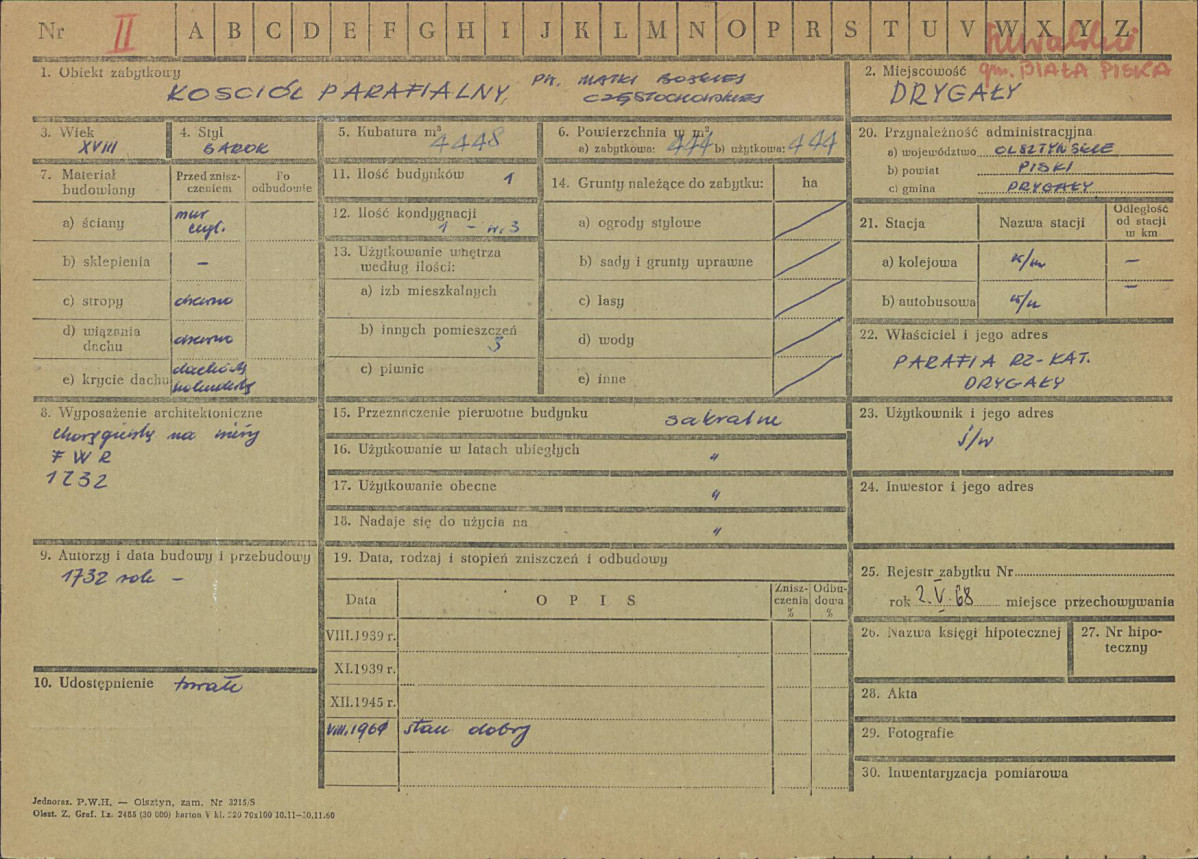 Nr II A B C D E F G H I J K L M N O P R S T U V W X Y Z
Suwalskie
gm. BIAŁA PISKA
1. Obiekt zabytkowy
KOSCIÓŁ PARAFIALNY, PW. MATKI BOSKIEJ
CZĘSTOCHOWSKIEJ
2. Miejscowość
DRYGAŁY
3. Wiek
XVIII
4. Styl
BAROK
5. Kubatura m³
4448
6. Powierzchnia w m²
a) zabytkowa: 444 b) użytkowa: 444
20. Przynależność administracyjna
a) województwo OLSZTYŃSKIE
b) powiat PISKI
c) gmina DRYGAŁY
7. Materiał budowlany
Przed znisz-
czeniem
Po
odbudowie
a) ściany mur
cegl.
b) sklepienia –
c) stropy drewno
d) wiązania
dachu drewno
e) krycie dachu dachówk
holenderk
11. Ilość budynków 1
12. Ilość kondygnacji
1 – w. 3
13. Użytkowanie wnętrza
według ilości:
a) izb mieszkalnych
b) innych pomieszczeń
3
c) piwnic
14. Grunty należące do zabytku: ha
a) ogrody stylowe
b) sady i grunty uprawne
c) lasy
d) wody
e) inne
21. Stacja Nazwa stacji Odległość
od stacji
w km
a) kolejowa –
b) autobusowa –
22. Właściciel i jego adres
PARAFIA RZ-KAT.
DRYGAŁY
8. Wyposażenie architektoniczne
na wieży
F W R
1732
15. Przeznaczenie pierwotne budynku sakralne
16. Użytkowanie w latach ubiegłych "
17. Użytkowanie obecne "
18. Nadaje się do użycia na "
23. Użytkownik i jego adres
j/w
24. Inwestor i jego adres
9. Autorzy i data budowy i przebudowy
1732 rok –
19. Data, rodzaj i stopień zniszczeń i odbudowy
Data O P I S Znisz-
czenia
% Odbu-
dowa
%
VIII.1939 r.
XI.1939 r.
XII.1945 r.
VIII.1961 stan dobry
25. Rejestr zabytku Nr
rok 2.V.68 miejsce przechowywania
26. Nazwa księgi hipotecznej
27. Nr hipo-
teczny
10. Udostępnienie trwałe
28. Akta
29. Fotografie
30. Inwentaryzacja pomiarowa
Jednoraz. P.W.H. — Olsztyn, zam. Nr 3215/S
Olszt. Z. Graf. Lz. 2465 (30 000) karton V kl. 220 70x100 10.11—30.11.60